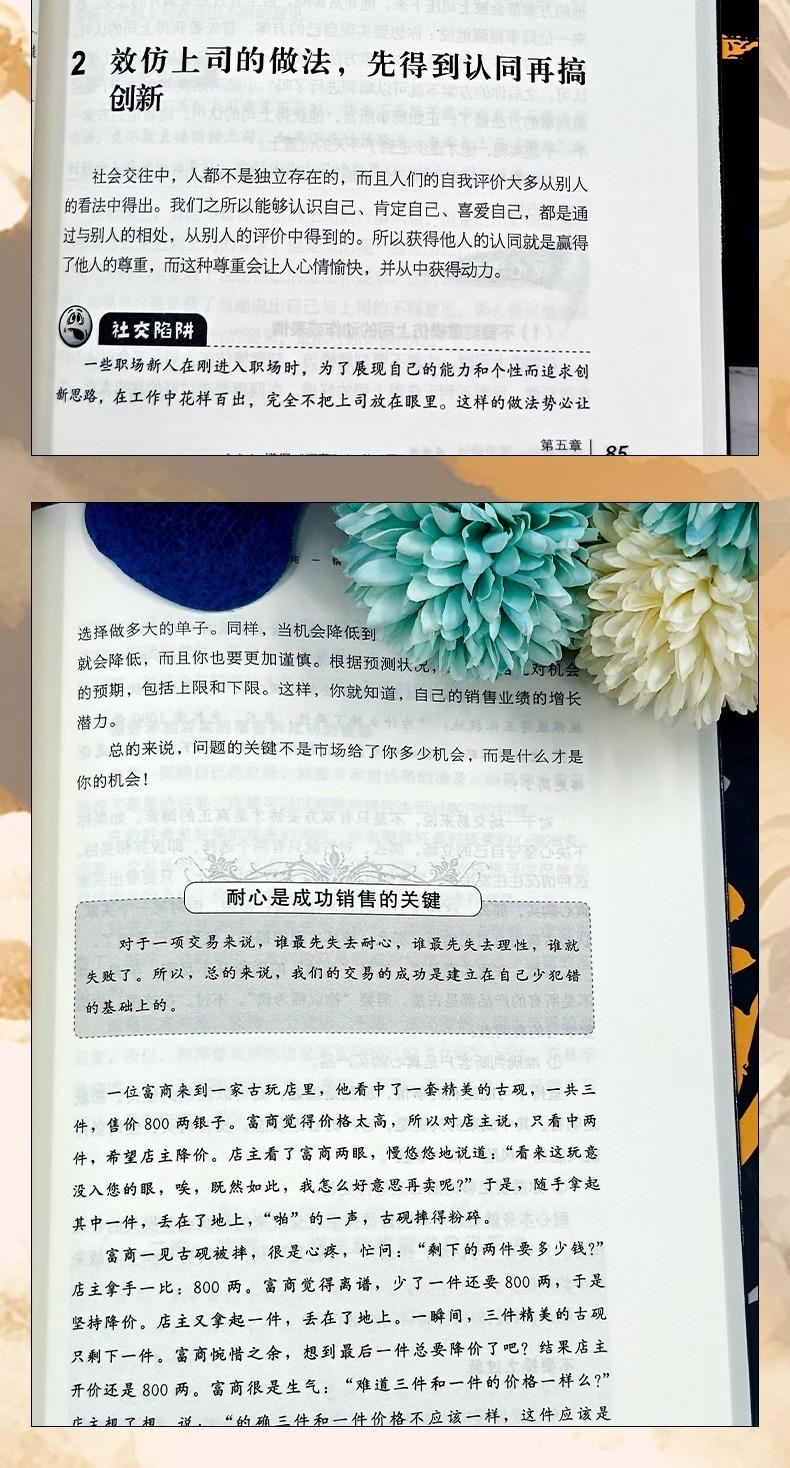 2 效仿上司的做法，先得到认同再搞
创新
社会交往中，人都不是独立存在的，而且人们的自我评价大多从别人
的看法中得出。我们之所以能够认识自己、肯定自己、喜爱自己，都是通
过与别人的相处，从别人的评价中得到的。所以获得他人的认同就是赢得
了他人的尊重，而这种尊重会让人心情愉快，并从中获得动力。
社交陷阱
一些职场新人在刚进入职场时，为了展现自己的能力和个性而追求创
新思路，在工作中花样百出，完全不把上司放在眼里。这样的做法势必让
第五章 85
选择做多大的单子。同样，当机会降低到
就会降低，而且你也要更加谨慎。根据预测状况，对机会
的预期，包括上限和下限。这样，你就知道，自己的销售业绩的增长
潜力。
总的来说，问题的关键不是市场给了你多少机会，而是什么才是
你的机会！
耐心是成功销售的关键
对于一项交易来说，谁最先失去耐心，谁最先失去理性，谁就
失败了。所以，总的来说，我们的交易的成功是建立在自己少犯错
的基础上的。
一位富商来到一家古玩店里，他看中了一套精美的古砚，一共三
件，售价 800 两银子。富商觉得价格太高，所以对店主说，只看中两
件，希望店主降价。店主看了富商两眼，慢悠悠地说道：“看来这玩意
没入您的眼，唉，既然如此，我怎么好意思再卖呢？”于是，随手拿起
其中一件，丢在了地上，“啪”的一声，古砚摔得粉碎。
富商一见古砚被摔，很是心疼，忙问：“剩下的两件要多少钱？”
店主拿手一比：800 两。富商觉得离谱，少了一件还要 800 两，于是
坚持降价。店主又拿起一件，丢在了地上。一瞬间，三件精美的古砚
只剩下一件。富商惋惜之余，想到最后一件总要降价了吧？结果店主
开价还是 800 两。富商很是生气：“难道三件和一件的价格一样么？”
店主想了想，说：“的确三件和一件价格不应该一样，这件应该是